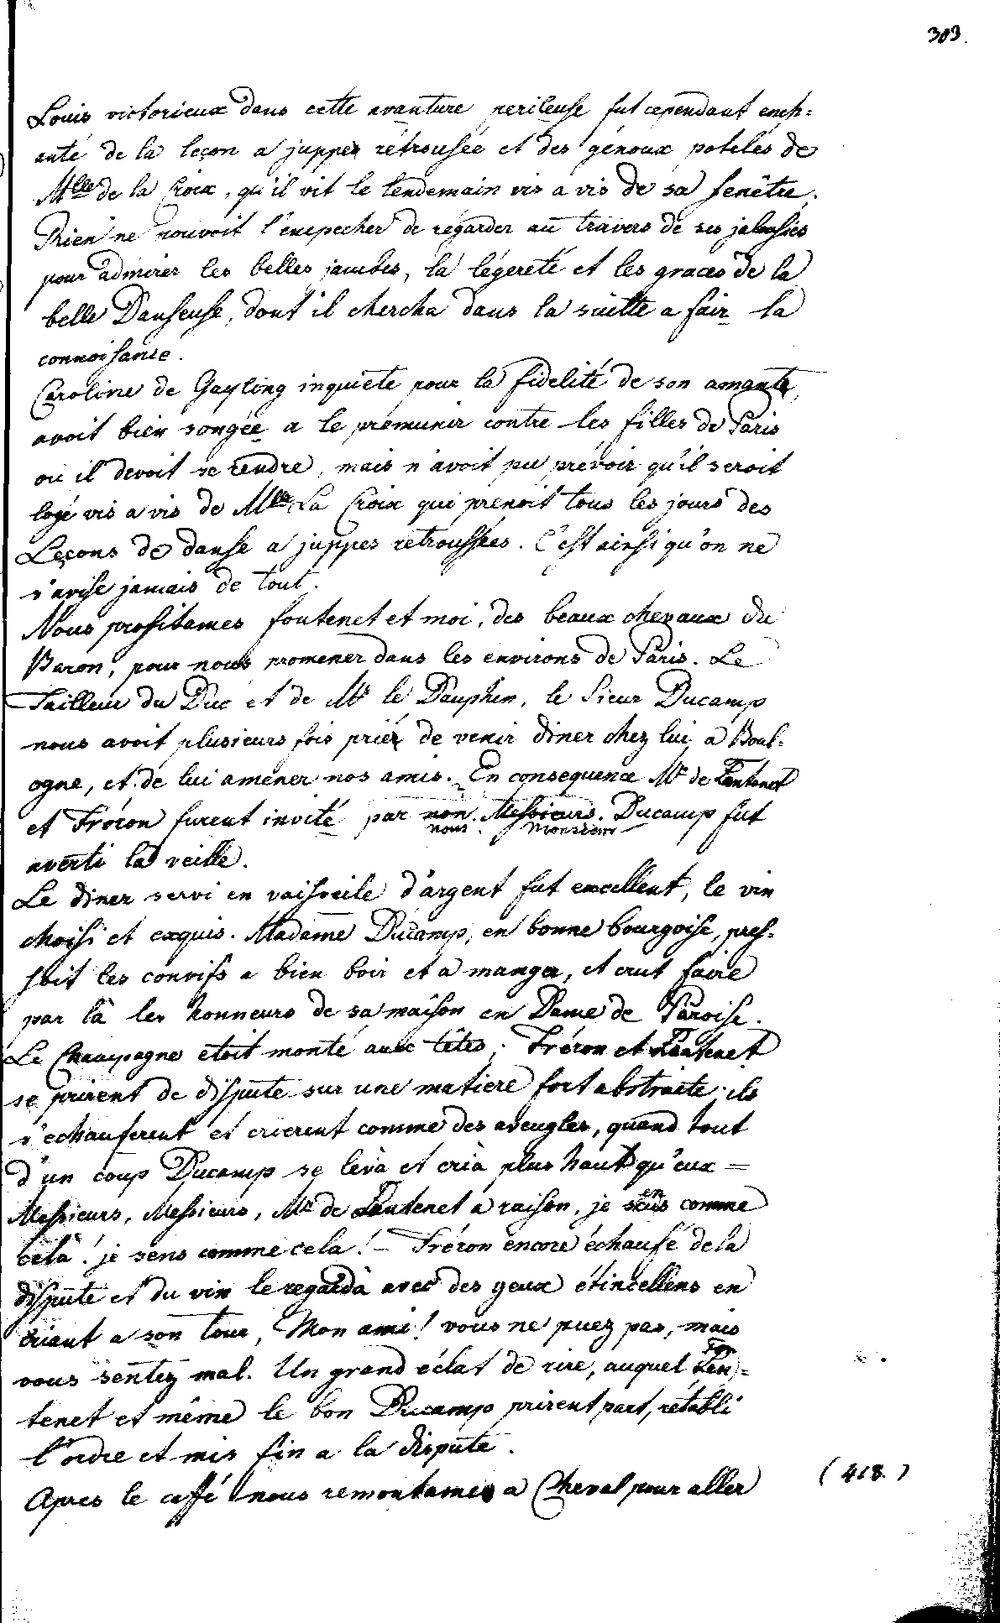 303.
Louis victorieux dans cette avanture perileuse fut cependant ench=
anté de la leçon a juppes rétrousée et des génoux potelés de
Mlle de la Croix, qu'il vit le lendemain vis a vis de sa fenêtre.
Rien ne pouvoit l'empecher de regarder au travers de ses jalousies
pour admirer les belles jambes, la légereté et les graces de la
belle Danseuse, dont il chercha dans la suitte a fair la
connoisance.
Caroline de Gayling inquiete pour la fidelité de son amante,
avoit bien songée a le prémunir contre les filles de Paris
ou il devoit se rendre, mais n'avoit pu prévoir qu'il seroit
logé vis a vis de Mlle La Croix qui prenoit tous les jours des
Leçons de danse a juppes retroussées. C'est ainsi qu'on ne
s'avise jamais de tout.
Nous profitames fontenet et moi, des beaux chevaux du
Baron, pour nous promener dans les environs de Paris. Le
Tailleur du Duc et de Mr le Dauphin, le Sieur Ducamp
nous avoit plusieurs fois priéz de venir diner chez lui a Boul=
ogne, et de lui amener nos amis. En consequence Mr de Fontenet
et Fréron furent invité par non Messieurs. Ducamp fut
nous Monsieur
averti la veille.
Le diner servi en vaisselle d'argent fut excellent, le vin
choisi et exquis. Madame Ducamp, en bonne bourgoise, pres=
soit les convifs a bien boir et a manger, et crut faire
par là les honneurs de sa maison en Dame de Paroise.
Le Champagne etoit monté aux têtes; Fréron et Fontenet
se prirent de dispute sur une matiere fort abstraite; ils
s'echauferent et crierent comme des aveugles, quand tout
d'un coup Ducamp se leva et cria plus haut qu'eux =
Messieurs, Messieurs, Mr de Fontenet a raison, je sens comme
cela! je sens comme cela! – Fréron encore échaufé de la
dispute et du vin le regarda avec des yeux étincellens en
criant a son tour, Mon ami! vous ne puez pas, mais
vous sentez mal. Un grand éclat de rire, auquel Fon=
tenet et même le bon Ducamp prirent part, rétabli
l'ordre et mis fin a la dispute.
Apres le caffé nous remontames a Cheval pour aller
(418.)